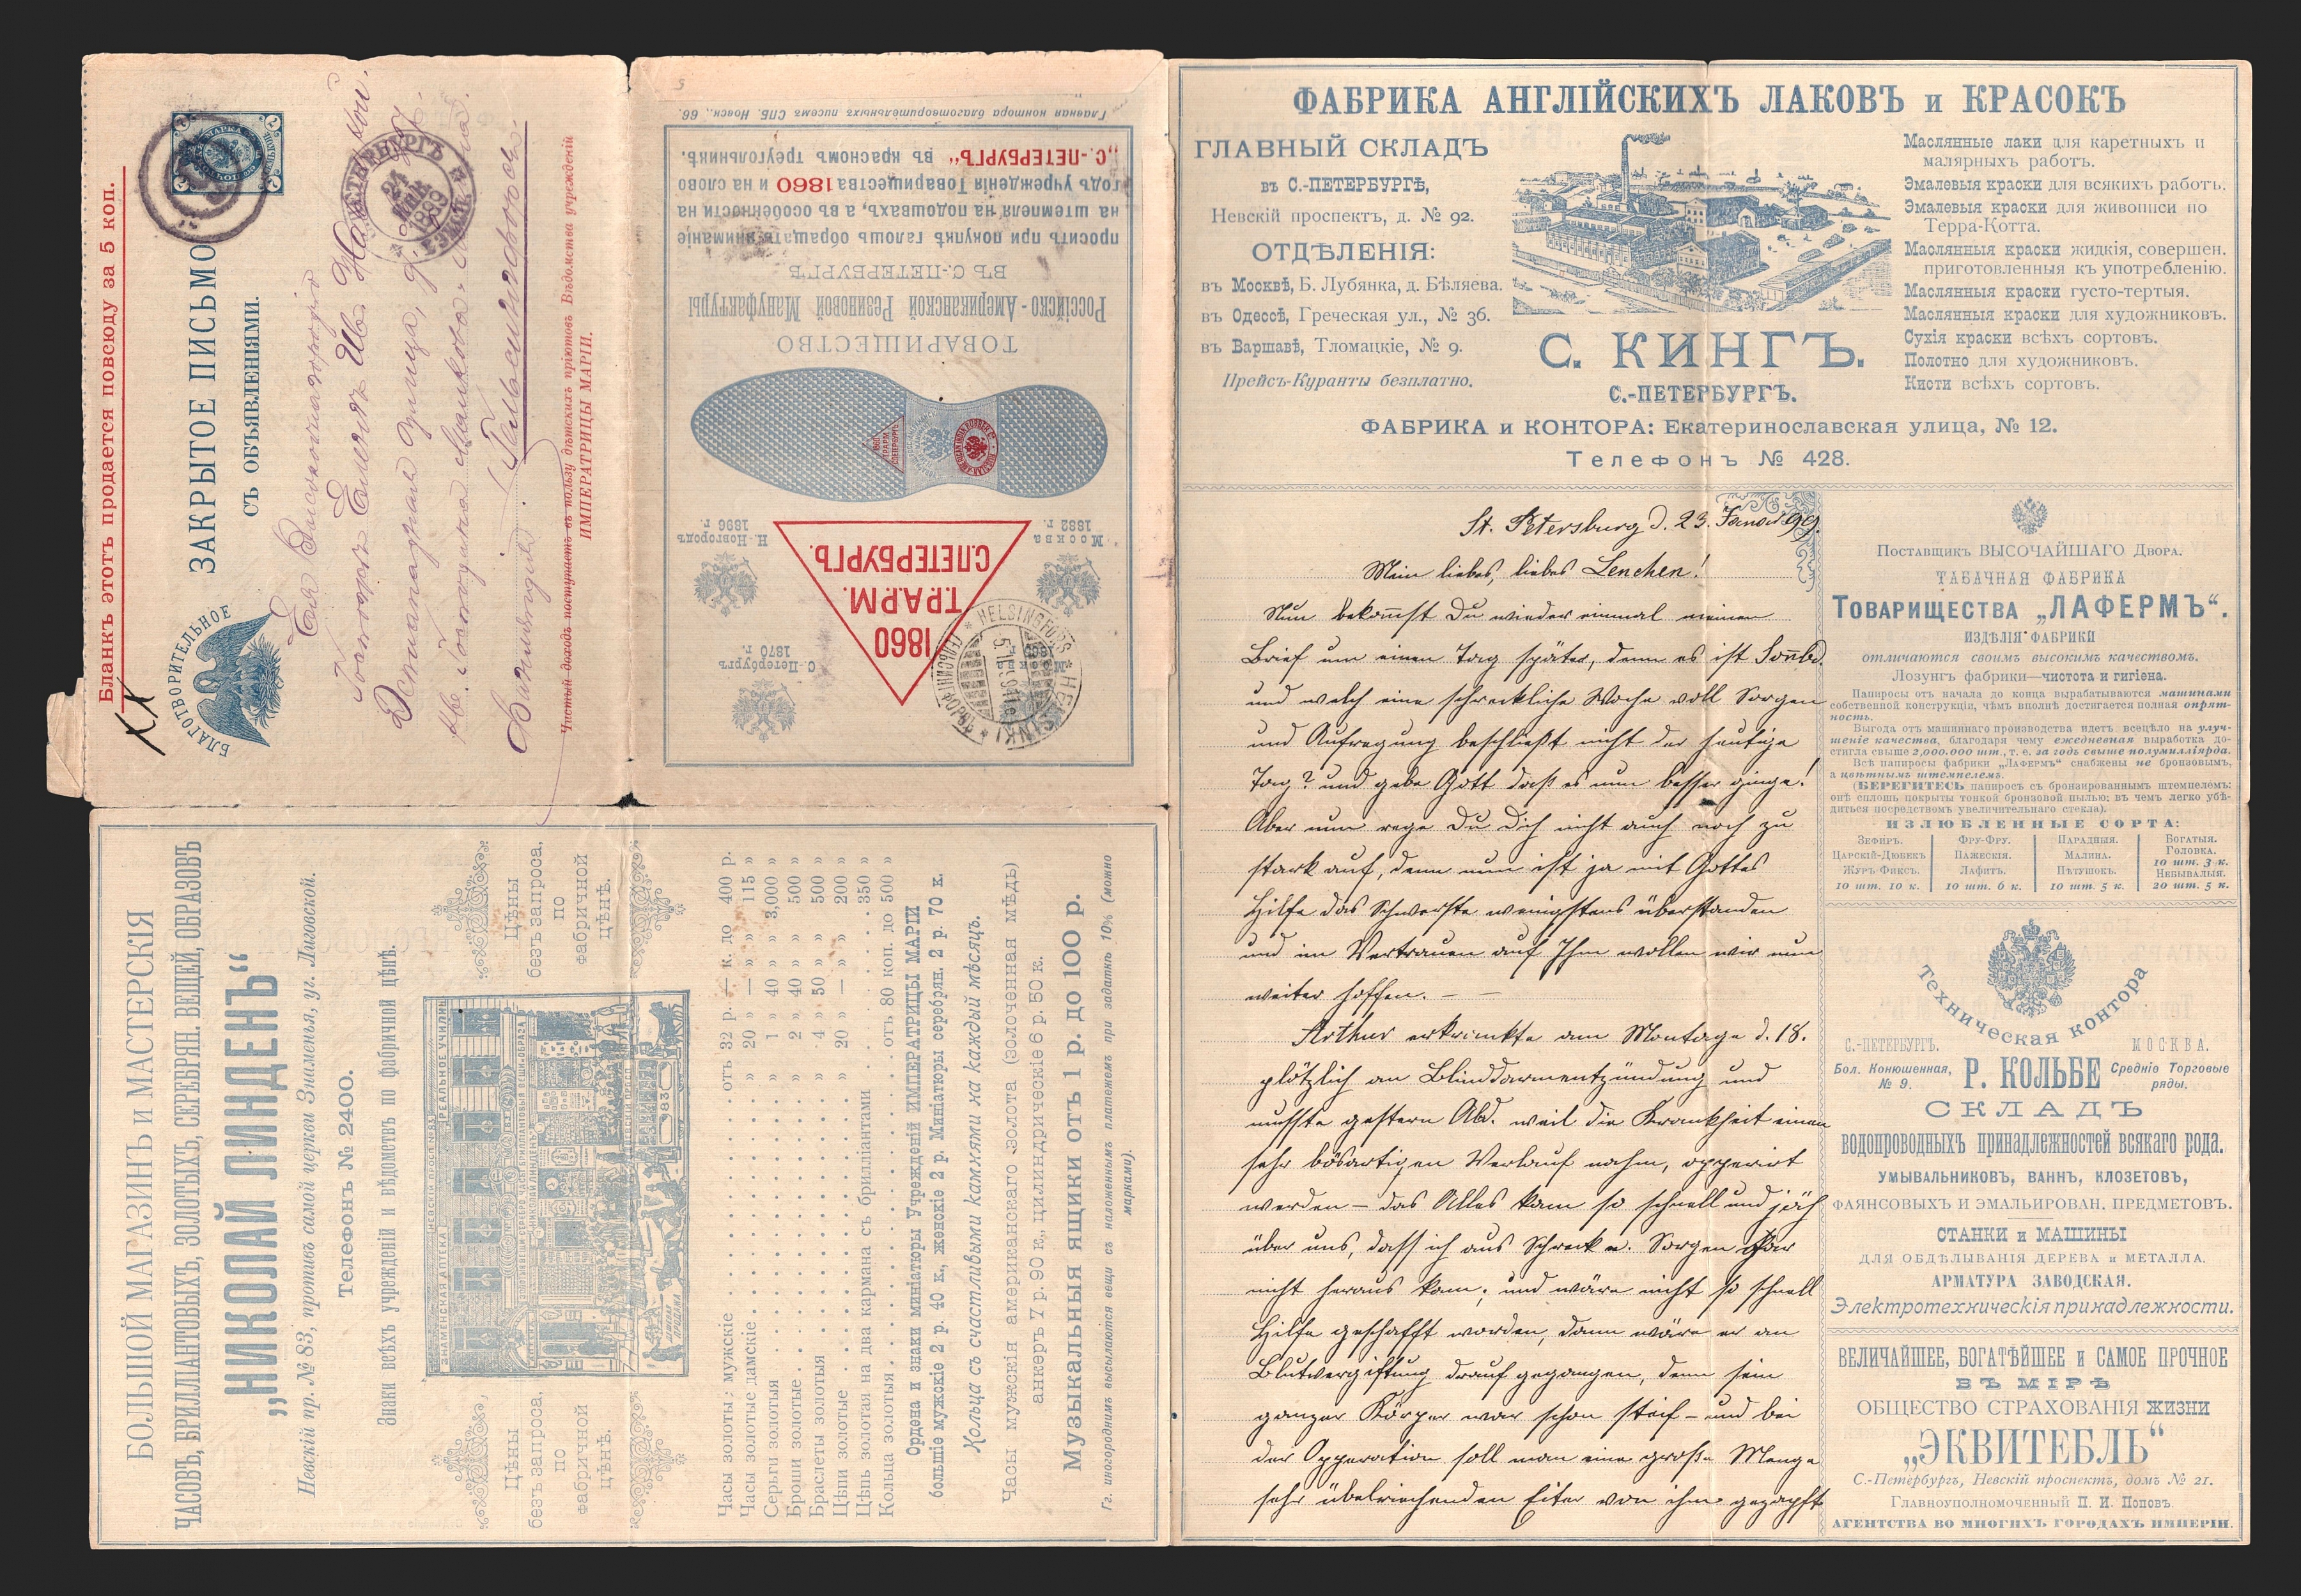 Бланкъ этотъ продается повсюду за 5 коп.
ЗАКРЫТОЕ ПИСЬМО
СЪ ОБЪЯВЛЕНІЯМИ.
БЛАГОТВОРИТЕЛЬНОЕ
Ея Высокоблагородію
Гельсингфорсъ.
Чистый доходъ поступаетъ въ пользу дѣтскихъ пріютовъ Вѣдомства учрежденій
ИМПЕРАТРИЦЫ МАРІИ.
Главная контора благотворительныхъ писемъ СПБ. Невск., 66.
1860
Т.Р.А.Р.М.
С.ПЕТЕРБУРГЪ.
С.-Петербургъ
1870 г.
Москва
1882 г.
Н.-Новгородъ
1896 г.
HELSINGFORS
HELSINKI
ТОВАРИЩЕСТВО
Россійско-Американской Резиновой Мануфактуры
ВЪ С.-ПЕТЕРБУРГѢ
проситъ при покупкѣ галошъ обращать вниманіе
на штемпеля на подошвахъ, а въ особенности на
годъ учрежденія Товарищества 1860 и на слово
„С.-ПЕТЕРБУРГЪ“ въ красномъ треугольникѣ.
БОЛЬШОЙ МАГАЗИНЪ и МАСТЕРСКІЯ
ЧАСОВЪ, БРИЛЛІАНТОВЫХЪ, ЗОЛОТЫХЪ, СЕРЕБРЯН. ВЕЩЕЙ, ОБРАЗОВЪ
„НИКОЛАЙ ЛИНДЕНЪ“
Невскій пр. № 83, противъ самой церкви Знаменья, уг. Лиговской.
Телефонъ № 2400.
Знаки всѣхъ учрежденій и вѣдомствъ по фабричной цѣнѣ.
Цѣны
безъ запроса,
по
фабричной
цѣнѣ.
ЗНАМЕНСКАЯ АПТЕКА
РЕАЛЬНОЕ УЧИЛИЩ
Цѣны
безъ запроса,
по
фабричной
цѣнѣ.
Часы золоты: мужскіе . . . . отъ 32 р. — к. до 400 р.
Часы золотые дамскіе . . . . » 20 » — » » 115 »
Серьги золотыя . . . . » 1 » 40 » » 3,000 »
Броши золотые . . . . » 2 » 40 » » 500 »
Браслеты золотыя . . . . » 4 » 50 » » 500 »
Цѣпи золотые . . . . » 20 » — » » 200 »
Цѣпь золотая на два кармана съ брилліантами . . . . 350 »
Кольца золотыя . . . . отъ 80 коп. до 500 »
Ордена и знаки миніатюры Учрежденій ИМПЕРАТРИЦЫ МАРІИ
большіе мужскіе 2 р. 40 к., женскіе 2 р. Миніатюры серебрян. 2 р. 70 к.
Кольца съ счастливыми камнями на каждый мѣсяцъ.
Часы мужскія американскаго золота (золоченная мѣдь)
анкеръ 7 р. 90 к., цилиндрическіе 6 р. 50 к.
Музыкальныя ящики отъ 1 р. до 100 р.
Гг. иногороднимъ высылаются вещи съ наложеннымъ платежемъ при задаткѣ 10% (можно
марками).
ФАБРИКА АНГЛІЙСКИХЪ ЛАКОВЪ и КРАСОКЪ
ГЛАВНЫЙ СКЛАДЪ
въ С.-ПЕТЕРБУРГѢ,
Невскій проспектъ, д. № 92.
ОТДѢЛЕНІЯ:
въ Москвѣ, Б. Лубянка, д. Бѣляева.
въ Одессѣ, Греческая ул., № 36.
въ Варшавѣ, Тломацкіе, № 9.
Прейсъ-Куранты безплатно.
С. КИНГЪ.
С.-ПЕТЕРБУРГЪ.
Маслянные лаки для каретныхъ и
малярныхъ работъ.
Эмалевыя краски для всякихъ работъ.
Эмалевыя краски для живописи по
Терра-Котта.
Маслянныя краски жидкія, совершен.
приготовленныя къ употребленію.
Маслянныя краски густо-тертыя.
Маслянныя краски для художниковъ.
Сухія краски всѣхъ сортовъ.
Полотно для художниковъ.
Кисти всѣхъ сортовъ.
ФАБРИКА и КОНТОРА: Екатеринославская улица, № 12.
Телефонъ № 428.
St. Petersburg d. 23. Januar 99.
Mein liebes, liebes Lenchen!
Nun bekom̄st Du wieder einmal meinen
Brief um einen Tag später, denn es ist Son̄bd.
und welch eine schreckliche Woche voll Sorgen
und Aufregung beschließt nicht der heutige
Tag? und gebe Gott daß es nun besser ginge!
Aber nun rege Du Dich nicht auch noch zu
stark auf, denn nun ist ja mit Gottes
Hilfe das Schwerste wenigstens überstanden
und im Vertrauen auf Ihm wollen wir nun
weiter hoffen. — —
Arthur erkrankte am Montage d. 18.
plötzlich an Blinddarmentzündung und
musste gestern Abd. weil die Krankheit einen
sehr bösartigen Verlauf nahm, opperirt
werden – das Alles kam so schnell und jäh
über uns, dass ich aus Schreck u. Sorgen gar
nicht heraus kam; und wäre nicht so schnell
Hilfe geschafft worden, dann wäre er an
Blutvergiftung drauf gegangen, denn sein
ganzer Körper war schon steif – und bei
der Opperation soll man eine große Menge
sehr übelriechenden Eiter von ihm gezapft
Поставщикъ ВЫСОЧАЙШАГО Двора.
ТАБАЧНАЯ ФАБРИКА
Товарищества „ЛАФЕРМЪ“.
ИЗДѢЛІЯ ФАБРИКИ
отличаются своимъ высокимъ качествомъ.
Лозунгъ фабрики—чистота и гигіена.
Папиросы отъ начала до конца вырабатываются машинами
собственной конструкціи, чѣмъ вполнѣ достигается полная опрят-
ность.
Выгода отъ машиннаго производства идетъ всецѣло на улуч-
шеніе качества, благодаря чему ежедневная выработка до-
стигла свыше 2,000.000 шт., т. е. за годъ свыше полумилліярда.
Всѣ папиросы фабрики „Лафермъ“ снабжены не бронзовымъ,
а цвѣтнымъ штемпелемъ.
(БЕРЕГИТЕСЬ папиросъ съ бронзированнымъ штемпелемъ:
онѣ сплошь покрыты тонкой бронзовой пылью; въ чемъ легко убѣ-
диться посредствомъ увеличительнаго стекла).
ИЗЛЮБЛЕННЫЕ СОРТА:
Зефиръ.
Царскій-Дюбекъ
Журъ-Фиксъ.
10 шт. 10 к.
Фру-Фру.
Пажескія.
Лафитъ.
10 шт. 6 к.
Парадныя.
Малина.
Пѣтушокъ.
10 шт. 5 к.
Богатыя.
Головка.
10 шт. 3 к.
Небывалыя.
20 шт. 5 к.
Техническая контора
С.-ПЕТЕРБУРГЪ.
Бол. Конюшенная,
№ 9.
Р. КОЛЬБЕ
МОСКВА.
Средніе Торговые
ряды.
СКЛАДЪ
водопроводныхъ принадлежностей всякаго рода.
УМЫВАЛЬНИКОВЪ, ВАННЪ, КЛОЗЕТОВЪ,
ФАЯНСОВЫХЪ И ЭМАЛЬИРОВАН. ПРЕДМЕТОВЪ.
СТАНКИ и МАШИНЫ
ДЛЯ ОБДѢЛЫВАНІЯ ДЕРЕВА и МЕТАЛЛА.
АРМАТУРА ЗАВОДСКАЯ.
Электротехническія принадлежности.
ВЕЛИЧАЙШЕЕ, БОГАТѢЙШЕЕ и САМОЕ ПРОЧНОЕ
ВЪ МІРѢ
ОБЩЕСТВО СТРАХОВАНІЯ ЖИЗНИ
„ЭКВИТЕБЛЬ“
С.-Петербургъ, Невскій проспектъ, домъ № 21.
Главноуполномоченный П. И. Поповъ.
АГЕНТСТВА ВО МНОГИХЪ ГОРОДАХЪ ИМПЕРІИ.